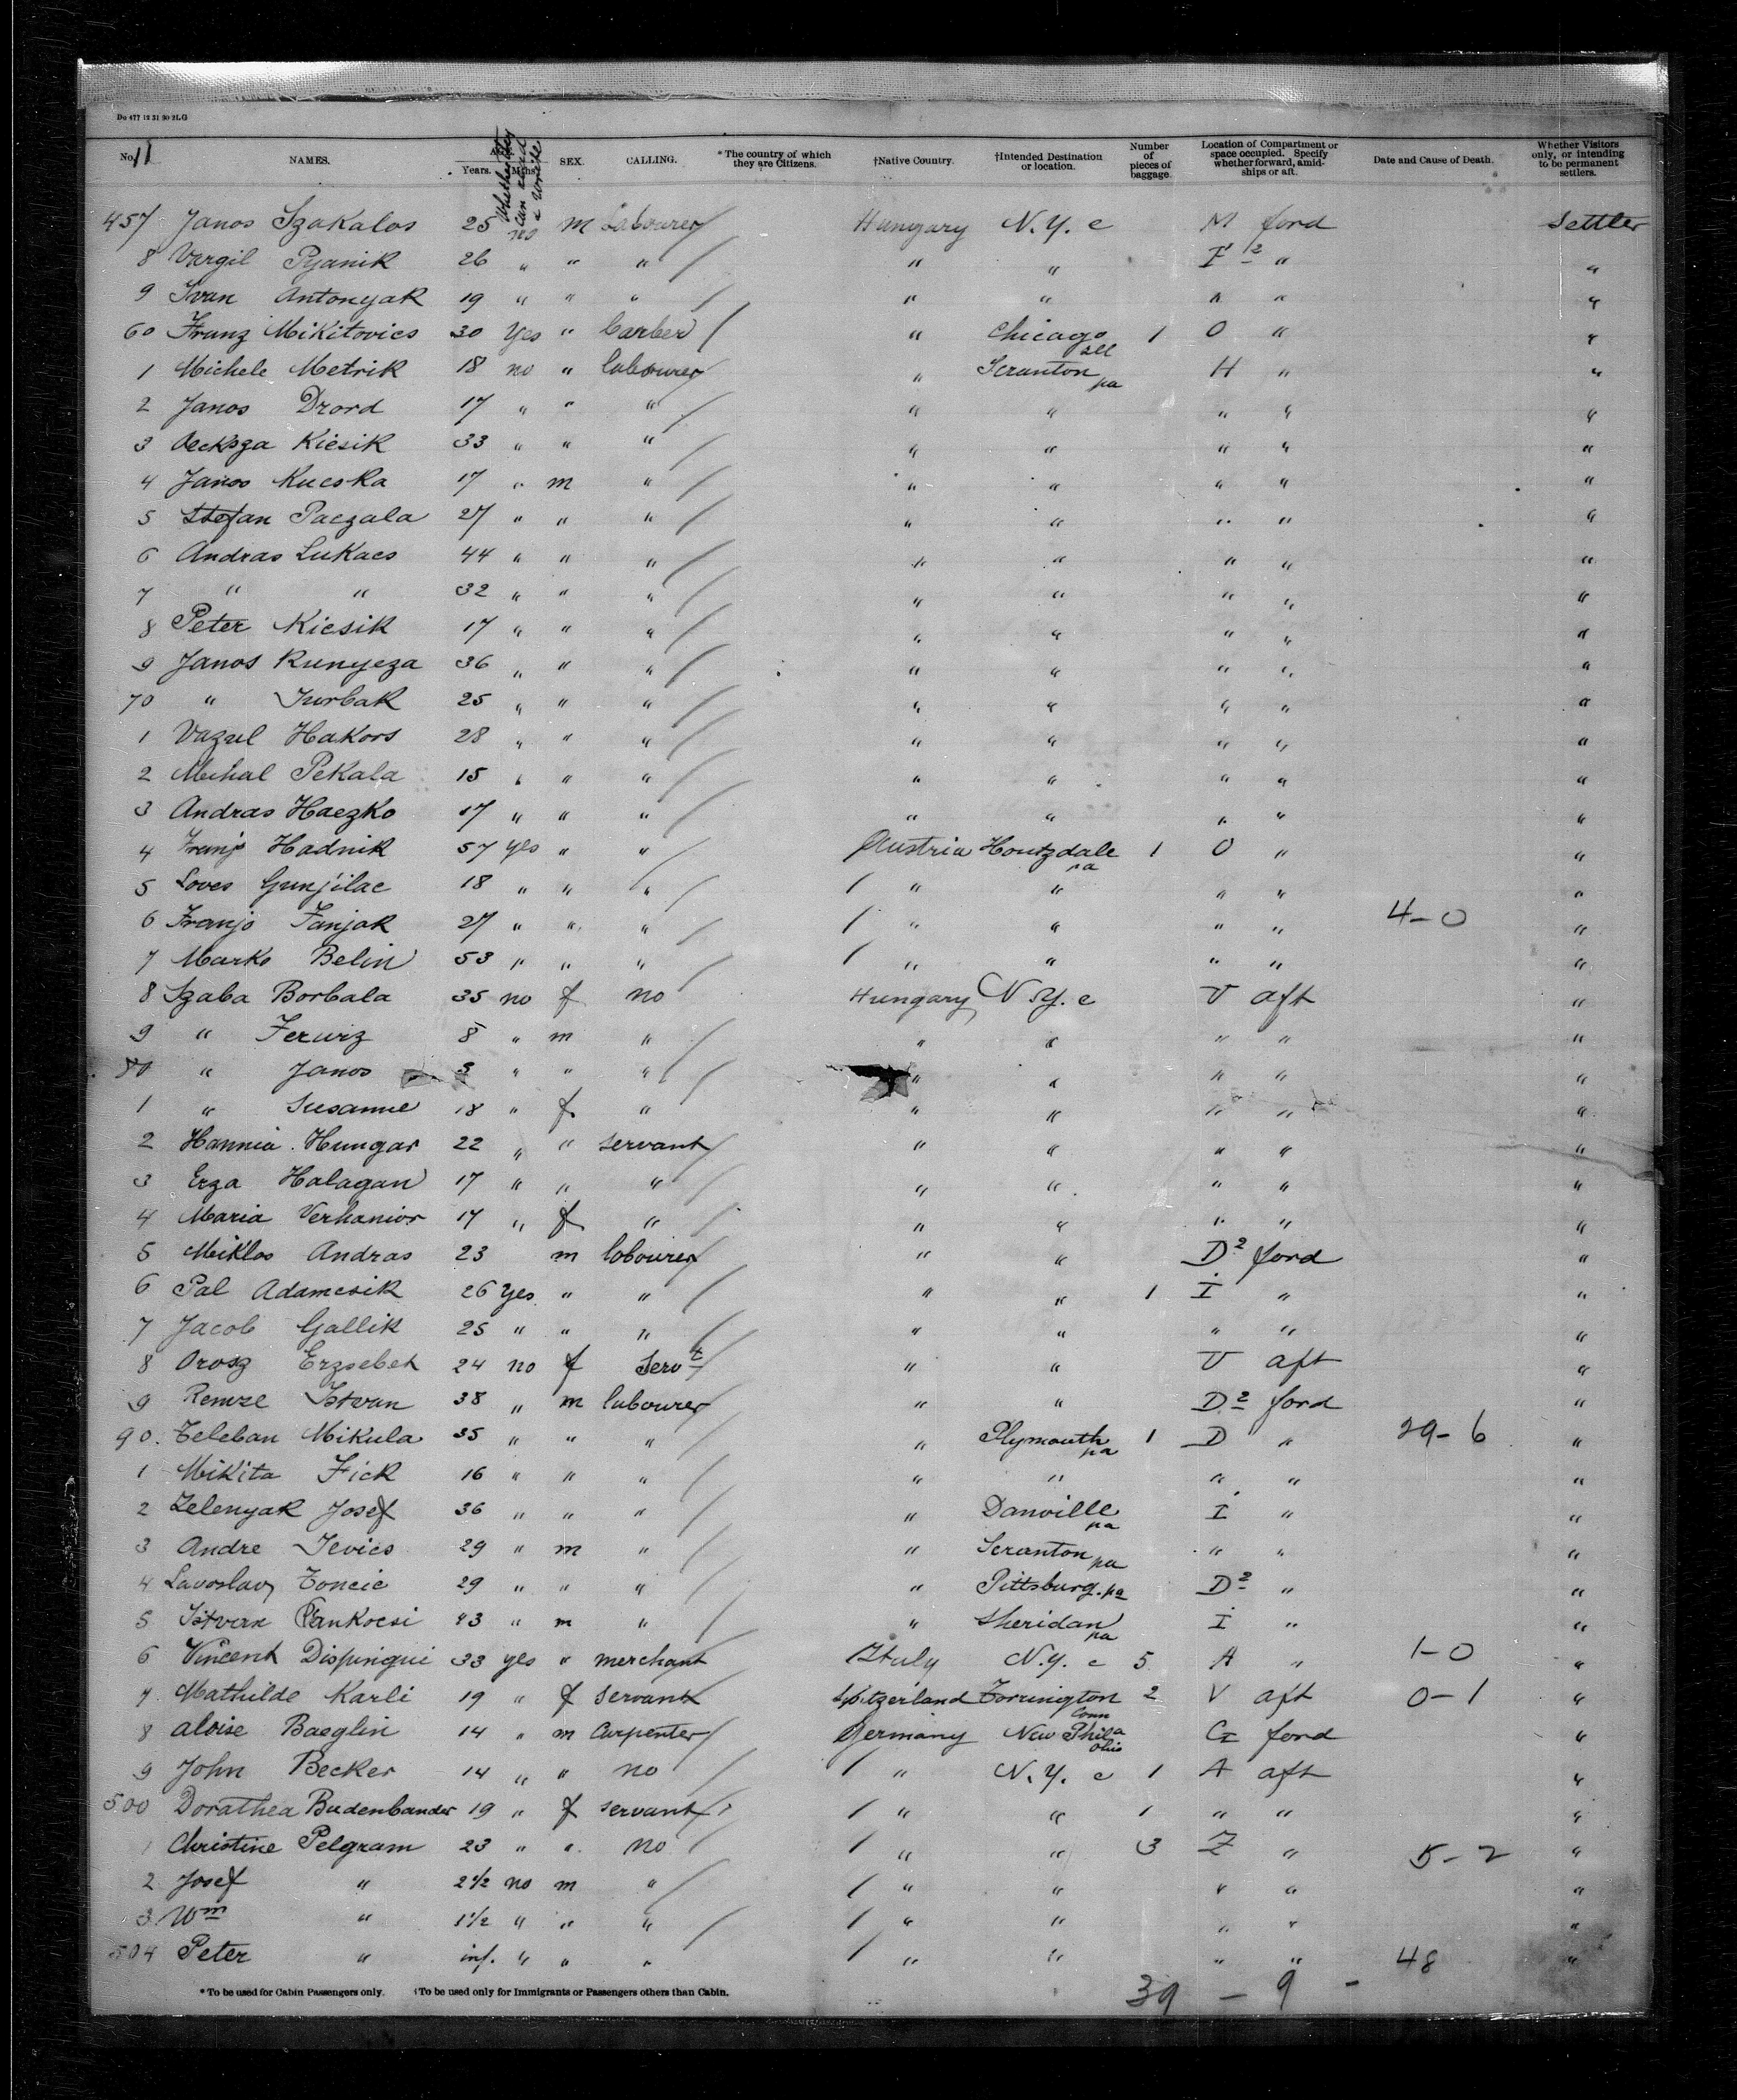 Do 477 12 31 90 2LG
No. 11 NAMES. AGE. Years. Mths. Whether they can read & write SEX. CALLING. * The country of which they are Citizens. †Native Country. †Intended Destination or location. Number of pieces of baggage. Location of Compartment or space occupied. Specify whether forward, amidships or aft. Date and Cause of Death. Whether Visitors only, or intending to be permanent settlers.
457 Janos Szakalos 25 no m Labourer Hungary N.Y. c M ford Settler
8 Vargil Pyanik 26 " " " " " I 2 " "
9 Ivan Antonyak 19 " " " " " " " "
60 Franz Mikitovics 30 Yes " Barber " Chicago Ill 1 O " "
1 Michele Metrik 18 no " labourer " Scranton pa H " "
2 Janos Drord 17 " " " " " " " "
3 Kicsik 33 " " " " " " " "
4 Janos Kucska 17 " m " " " " " "
5 Stefan Paczala 27 " " " " " " " "
6 Andras Lukacs 44 " " " " " " " "
7 " " 32 " " " " " " " "
8 Peter Kicsik 17 " " " " " " " "
9 Janos Runyeza 36 " " " " " " " "
70 " Turbak 25 " " " " " " " "
1 Vazul Hakors 28 " " " " " " " "
2 Mihal Pekala 15 " " " " " " " "
3 Andras Haczko 17 " " " " " " " "
4 Franjo Hadnik 57 yes " " Austria Houtzdale pa 1 O " "
5 Loves Gunjilac 18 " " " " " " " "
6 Franjo Fanjak 27 " " " " " " " 4-0 "
7 Marko Belin 53 " " " " " " " "
8 Szaba Borbala 35 no f no Hungary N.Y. c V aft "
9 " Ferwiz 8 " m " " " " " "
80 " Janos 3 " " " " " " " "
1 " Susanne 18 " f " " " " " "
2 Hannia Hungar 22 " " servant " " " " "
3 Erza Halagan 17 " " " " " " " "
4 Maria Verhanior 17 " f " " " " " "
5 Miklos Andras 23 m labourer " " D2 ford "
6 Pal Adamcsik 26 Yes " " " " 1 I " "
7 Jacob Gallik 25 " " " " " " " "
8 Orosz Erzsebet 24 no f Servt " " V aft "
9 Remze Istvan 38 " m labourer " " D2 ford "
90. Teleban Mikula 35 " " " " Plymouth pa 1 D " 29-6 "
1 Mikita Fick 16 " " " " " " " "
2 Zelenyak Josef 36 " " " " Danville pa I " "
3 Andre Jevics 29 " m " " Scranton pa " " "
4 Lavoslav Toncic 29 " " " " Pittsburg. pa D2 " "
5 Istvan Pankocsi 43 " m " " Sheridan pa I " "
6 Vincent Dispingui 33 yes " merchant Italy N.Y. c 5 A " 1-0 "
7 Mathilde Karli 19 " f servant Switzerland Torrington Conn 2 V aft 0-1 "
8 Aloise Baeglin 14 " m Carpenter Germany New Phila Ohio G ford "
9 John Becker 14 " " no " N.Y. c 1 A aft "
500 Dorathea Budenbander 19 " f servant " " 1 " " "
1 Christine Pelgram 23 " " no " " 3 Z " 5-2 "
2 Josef " 2 1/2 no m " " " " " "
3 Wm " 1 1/2 " " " " " " " "
504 Peter " inf. " " " " " " " 48 "
* To be used for Cabin Passengers only. †To be used only for Immigrants or Passengers others than Cabin. 39 - 9 -